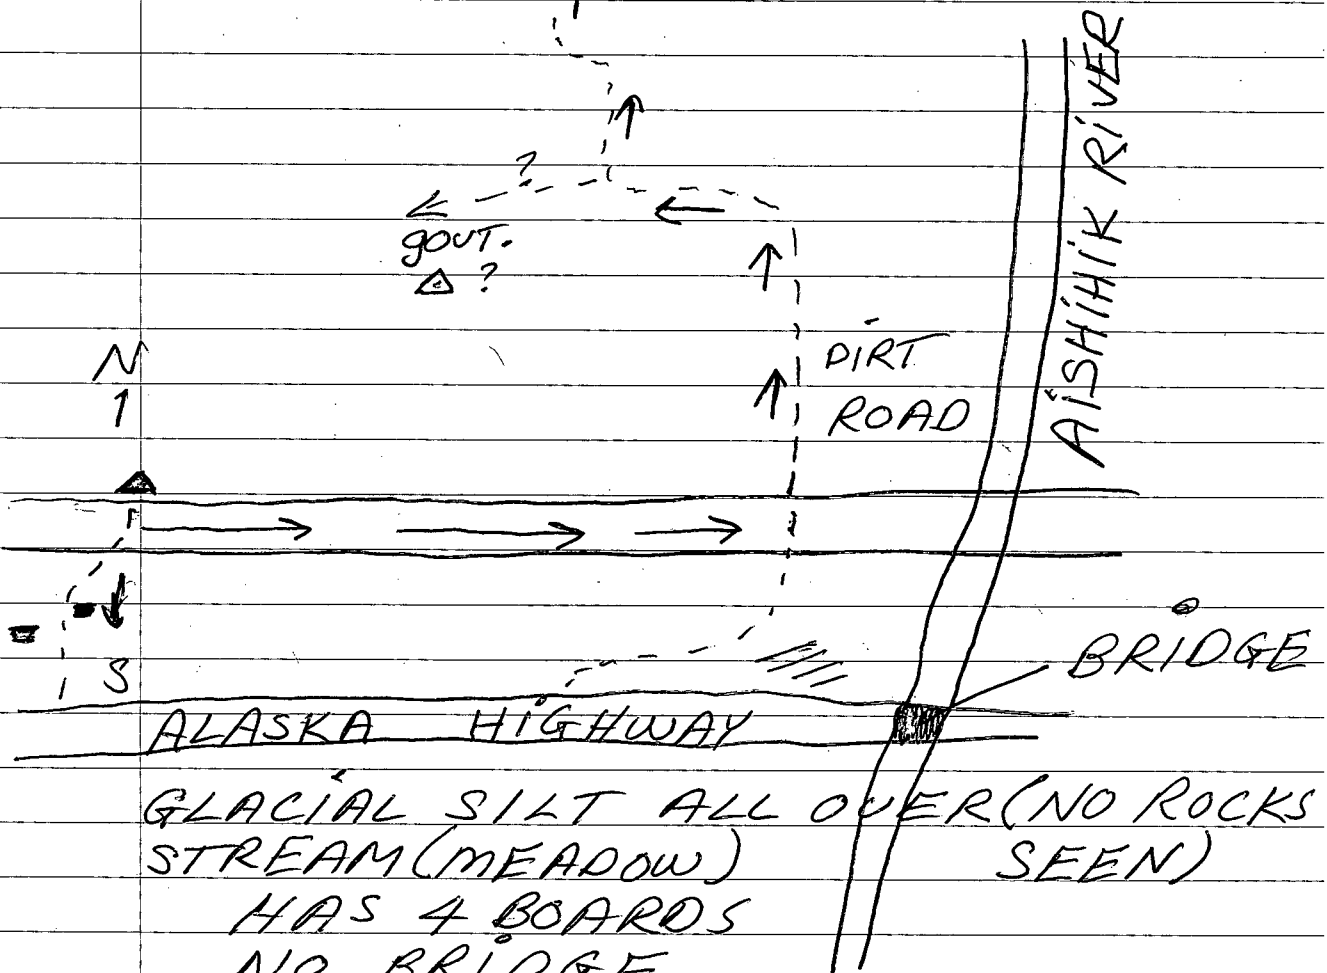 AISHIHIK RIVER
?
gout.
?
DIRT
ROAD
N
S
BRIDGE
ALASKA HIGHWAY
GLACIAL SILT ALL OVER (NO ROCKS
SEEN)
STREAM (MEADOW)
HAS 4 BOARDS
NO BRIDGE